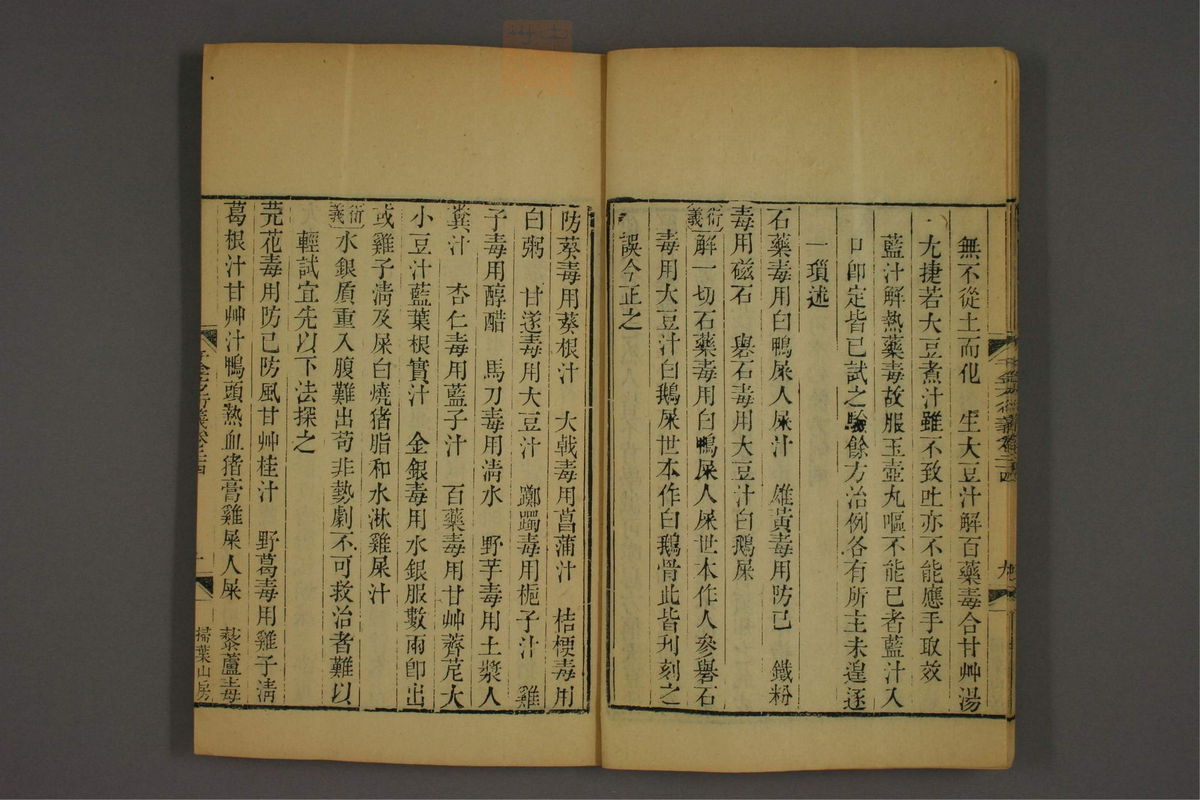 無不從土而化　生大豆汁解百藥毒合甘艸湯
尤捷若大豆煮汁雖不致吐亦不能應手取效
藍汁解熱藥毒故服玉壺丸嘔不能已者藍汁入
口卽定皆已試之驗餘方治例各有所主未遑逐
一瑣述
石藥毒用白鴨屎人屎汁　雄黃毒用防己　鐵粉
毒用磁石　礜石毒用大豆汁白鵝屎
衍義 解一切石藥毒用白鴨屎人屎世本作人參礜石
毒用大豆汁白鵝屎世本作白鵝骨此皆刋刻之
誤今正之
防葵毒用葵根汁　大戟毒用菖蒲汁　桔梗毒用
白粥　甘遂毒用大豆汁　躑躅毒用梔子汁　雞
子毒用醇醋　馬刀毒用淸水　野芋毒用土漿人
糞汁　杏仁毒用藍子汁　百藥毒用甘艸薺苨大
小豆汁藍葉根實汁　金銀毒用水銀服數兩卽出
或雞子淸及屎白燒猪脂和水淋雞屎汁
衍義 水銀質重入腹難出苟非勢劇不可救治者難以
輕試宜先以下法探之
芫花毒用防已防風甘艸桂汁　野葛毒用雞子淸
葛根汁甘艸汁鴨頭熱血猪膏雞屎人屎　藜蘆毒
千金方衍義卷二十四
掃葉山房